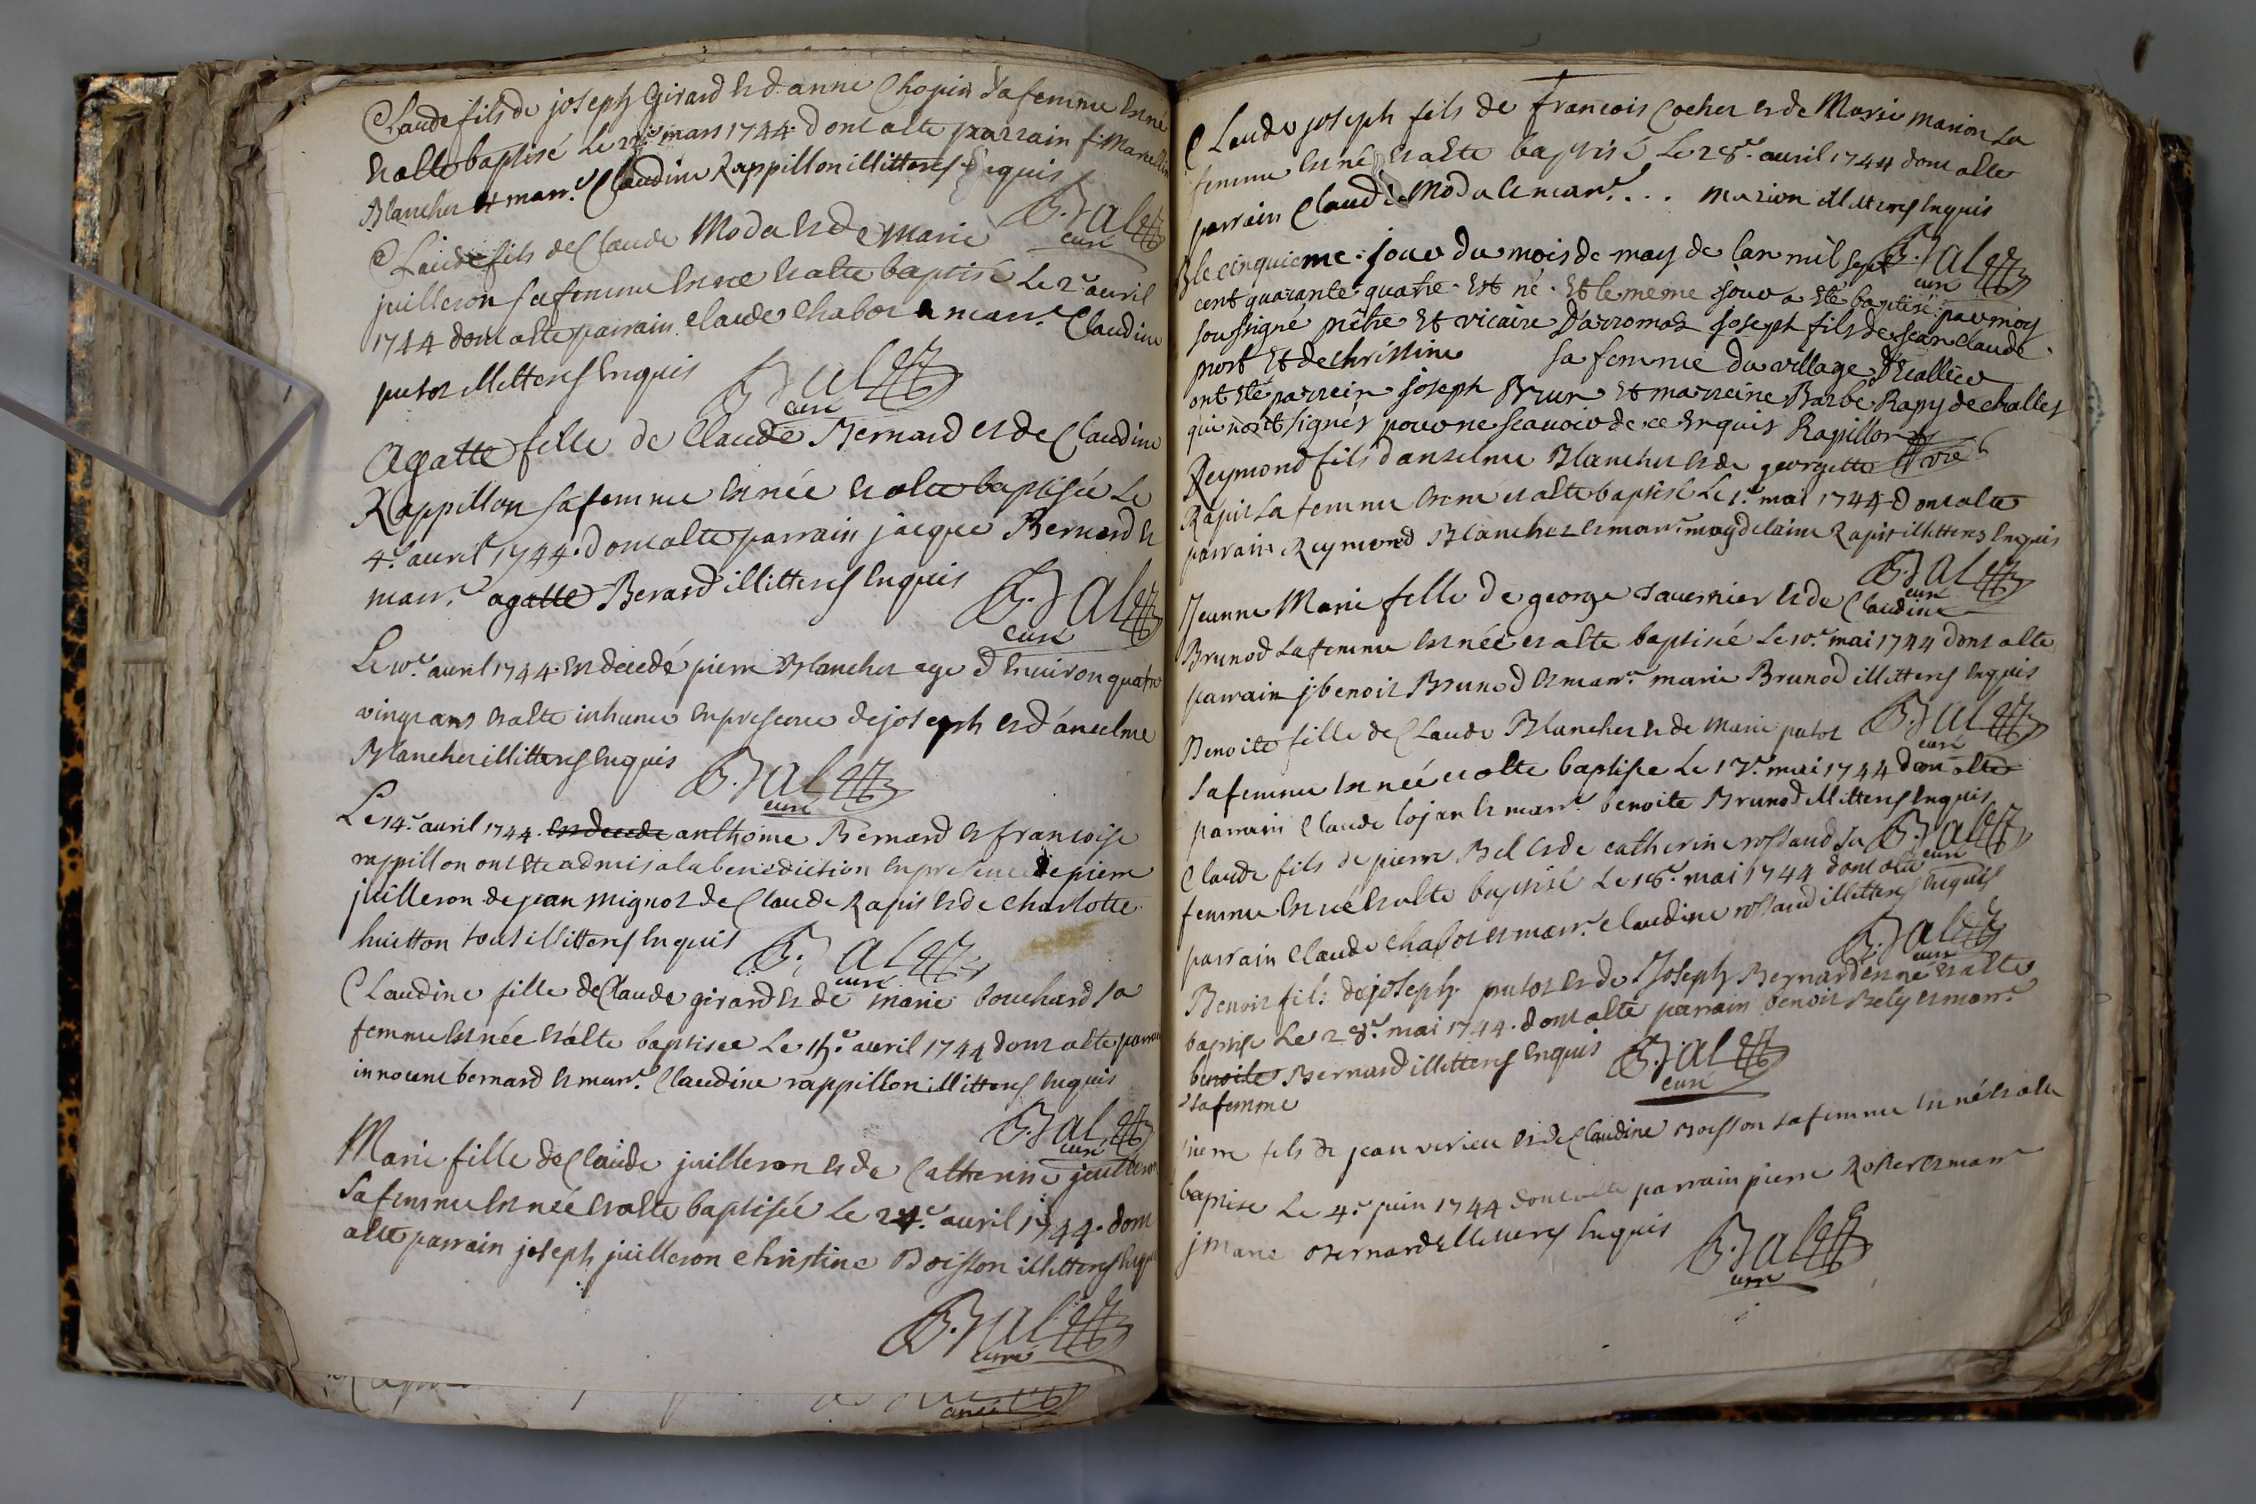 Claude fils de joseph Girard et d'anne Chopin sa femme est né
et a esté baptisé le 22e mars 1744 dont a esté parrain f. Marcellin
Blanchet et marr.e Claudine Rappillon illitterés enquis
B. Jal
curé
Claude fils de Claude Moda et de marie
juilleron sa femme est né et a esté baptisé le 2e avril
1744 dont a esté parrain claude chabot et marr.e Claudine
putot illitterés enquis
B. Jal
curé
Agatte fille de Claude Bernard et de Claudine
Rappillon sa femme est née et a esté baptisée le
4e avril 1744 dont a esté parrain jacque Bernard et
marr.e agatte Berard illitterés enquis
B. Jal
curé
Le 10e avril 1744 est decedé pierre Blanchet age d'environ quatre
vingt ans et a esté inhumé en presence de joseph et d'anselme
Blanchet illitterés enquis
B. Jal
curé
Le 14e avril 1744 est decede anthoine Bernard et francoise
rappillon ont esté admis a la benediction en presence de pierre
juilleron de jean mignot de Claude Rapit et de charlotte
huitton tous illitterés enquis
B. Jal
curé
Claudine fille de Claude girard et de marie bouchard sa
femme est née et a esté baptisee le 15e avril 1744 dont a esté parrain
innocent bernard et marr.e Claudine rappillon illitterés enquis
B. Jal
curé
Marie fille de Claude juilleron et de Catherine juilleron
sa femme est née et a esté baptisée le 24e avril 1744 dont
a esté parrain joseph juilleron christine Boisson illitterés enquis
B. Jal
curé
curé
Claude joseph fils de francois Cochet et de Marie marion sa
femme est né et a esté baptisé le 28e avril 1744 dont a esté
parrain Claude Moda et marr.e ... marion illitterés enquis
B. Jal
curé
le cinquieme jour du mois de may de lan mil sept
cent quarante quatre est né et le meme jour a été baptisé par moy
soussigné prêtre et vicaire D'arromas joseph fils de jean claude
mort et de christine sa femme du village
ont été parrein joseph Brun et marreine Barbe Rapy de challes
qui n'ont signés pour ne scavoir de ce enquis Rapillon
vre
Reymond fils d'anselme Blanchet et de georgette
Rapit sa femme est né et a esté baptisé le 1e mai 1744 dont a esté
parrain Reymond Blanchet et marr.e magdelaine Rapit illitterés enquis
B. Jal
curé
Jeanne Marie fille de george tavernier et de Claudine
Brunod sa femme est née et a esté baptisée le 10e mai 1744 dont a esté
parrain j benoit Brunod et marr.e marie Brunod illitterés enquis
B. Jal
curé
Benoite fille de Claude Blanchet et de marie putot
sa femme est née et a esté baptisée le 17e mai 1744 dont a esté
parrain claude lojan et marr.e benoite Brunod illitterés enquis
B. Jal
curé
Claude fils de pierre Bel et de catherine rossaud sa
femme est né et a esté baptisé le 18e mai 1744 dont a esté
parrain claude chabot et marr.e claudine rossaud illitterés enquis
B. Jal
curé
Benoit fils de joseph putot et de Joseph Bernard est né et a esté
baptisé le 28e mai 1744 dont a esté parrain benoit Bely et marr.e
benoite Bernard illitterés enquis
B. Jal
curé
sa femme
pierre fils de jean verieu et de Claudine Boisson sa femme est né et a esté
baptisé le 4e juin 1744 dont a esté parrain pierre Rosset et marr.e
j Marie Bernard illitterés enquis
B. Jal
curé